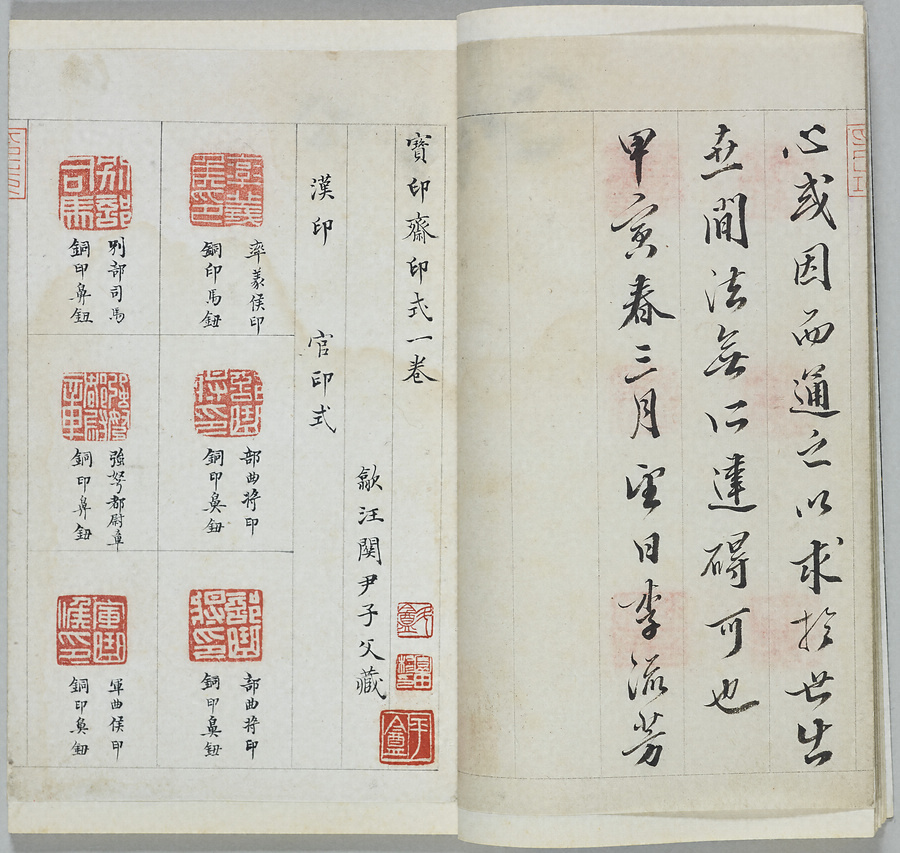 心或因而通之以求於世出
世間法無所達碍可也
甲寅春三月望日李流芳
寶印齋印式一卷
歙汪關尹子父藏
漢印 官印式
率義侯印
銅印馬鈕
部曲將印
銅印鼻鈕
部曲將印
銅印鼻鈕
別部司馬
銅印鼻鈕
強弩都尉章
銅印鼻鈕
軍曲侯印
銅印鼻鈕
別部司馬
軍曲侯印